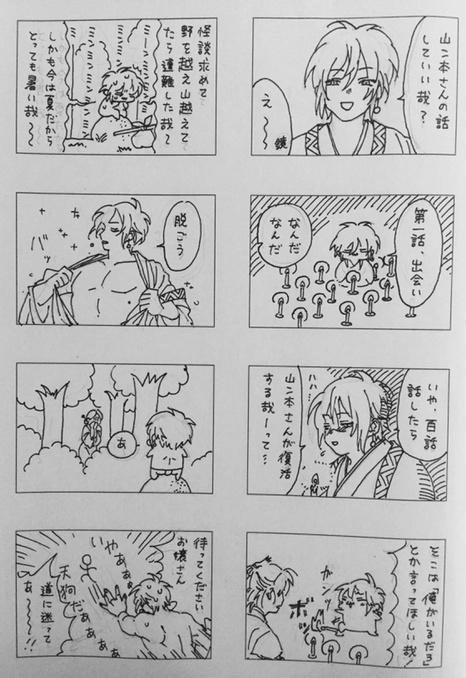 山ン本さんの話
していい哉?
え〜〜
鏡
第一話、出会い
なんだ
なんだ
いや、百話
話したら
ハハ
山ン本さんが復活
する哉ーって…
そこは「俺がいるだろ」
とか言ってほしい哉!
ガンッ
ボッ
怪談求めて
野を越え山越えて
たら遭難した哉?
しかも今は夏だから
とっても暑い哉〜〜
脱ごう
バッ
あ
待ってください
お嬢さん
いやあぁ
天狗だぁぁぁ
道に迷って
あ〜〜!!